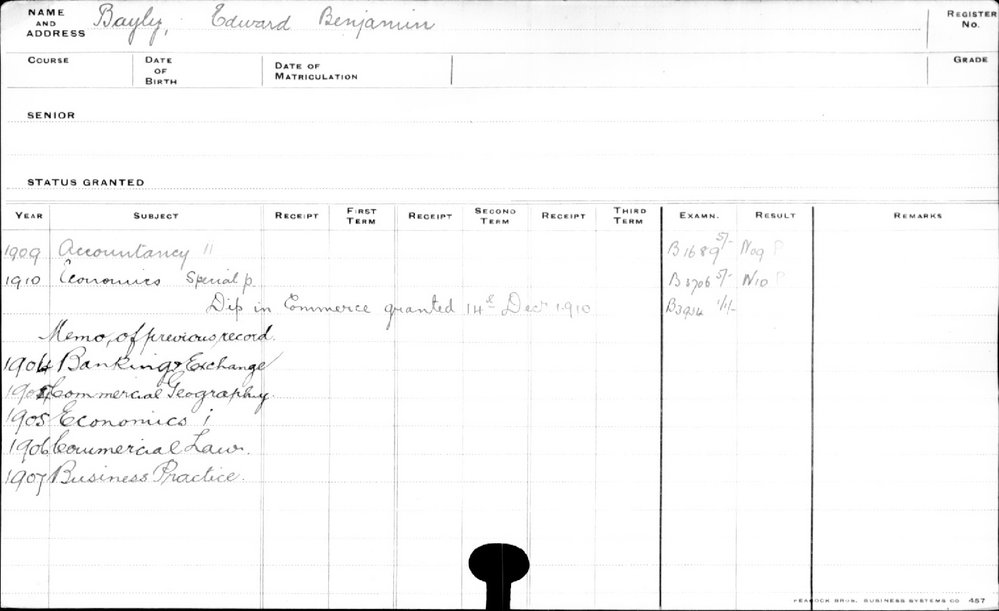 NAME AND ADDRESS Bayly, Edward Benjamin REGISTER No.
COURSE DATE OF BIRTH DATE OF MATRICULATION GRADE
SENIOR
STATUS GRANTED
YEAR SUBJECT RECEIPT FIRST TERM RECEIPT SECOND TERM RECEIPT THIRD TERM EXAMN. RESULT REMARKS
1909 Accountancy 11 B1689 5/- N09 P
1910 Economics Special p. 5/- N10 P
Dip in Commerce granted 14th Decr 1910
Memo, of previous record.
1904 Banking & Exchange
Commercial Geography.
1905 Economics i
1906 Commercial Law.
1907 Business Practice.
PEACOCK BROS. BUSINESS SYSTEMS CO 457